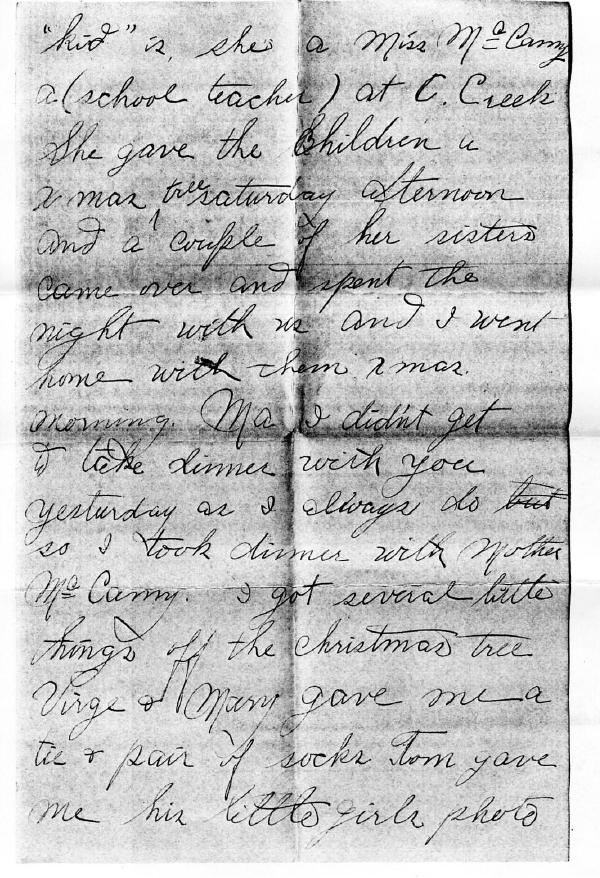 "kid" is, she a Miss McCamy
a (school teacher) at C. Creek
She gave the Children a
x mas tree saturday afternoon
and a couple of her sisters
came over and spent the
night with us and I went
home with them x mas.
morning. Ma I didn't get
to take dinner with you
yesturday as I always do but
so I took dinner with Mother
McCamy. I got several little
things off the christmas tree
Virge & Mary gave me a
tie & pair of socks Tom gave
me his little girls photo